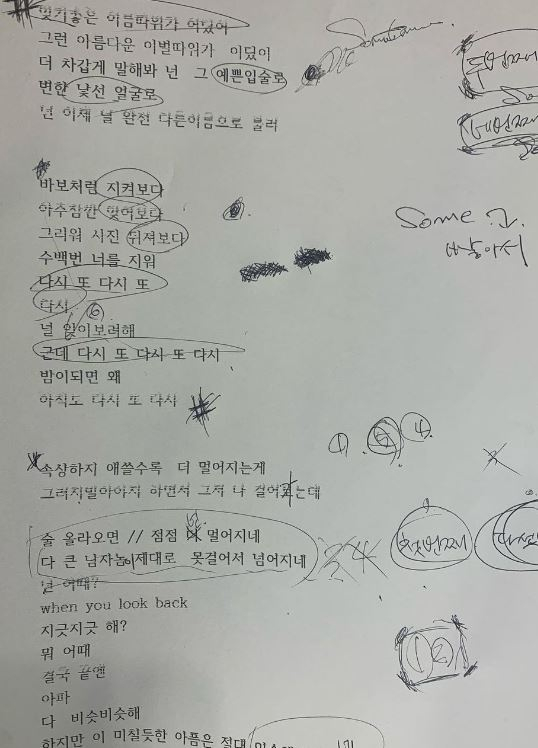 멋기좋은 이별따위가 어딨어
그런 아름다운 이별따위가 이딨이
더 차갑게 말해봐 넌 그 예쁜입술로
변한 낯선 얼굴로
넌 이제 날 완전 다른이름으로 불러
바보처럼 지켜보다
아주잠깐 웃어보다
그리워 사진 뒤져보다
수백번 너를 지워
다시 또 다시 또
다시
⑥
널 잊이보려해
근데 다시 또 다시 또 다시
밤이되면 왜
아직도 다시 또 다시
Some
① ⑤ ④
속상하지 애쓸수록 더 멀어지는게
그러지말아야지 하면서 그저 나 걸어
술 올라오면 // 점점 더 멀어지네
다 큰 남자놈이 제대로 못걸어서 넘어지네
첫번째
넌 어때?
when you look back
지긋지긋 해?
뭐 어때
결국 끝엔
① ②
아파
다 비슷비슷해
하지만 이 미칠듯한 아픔은 절대